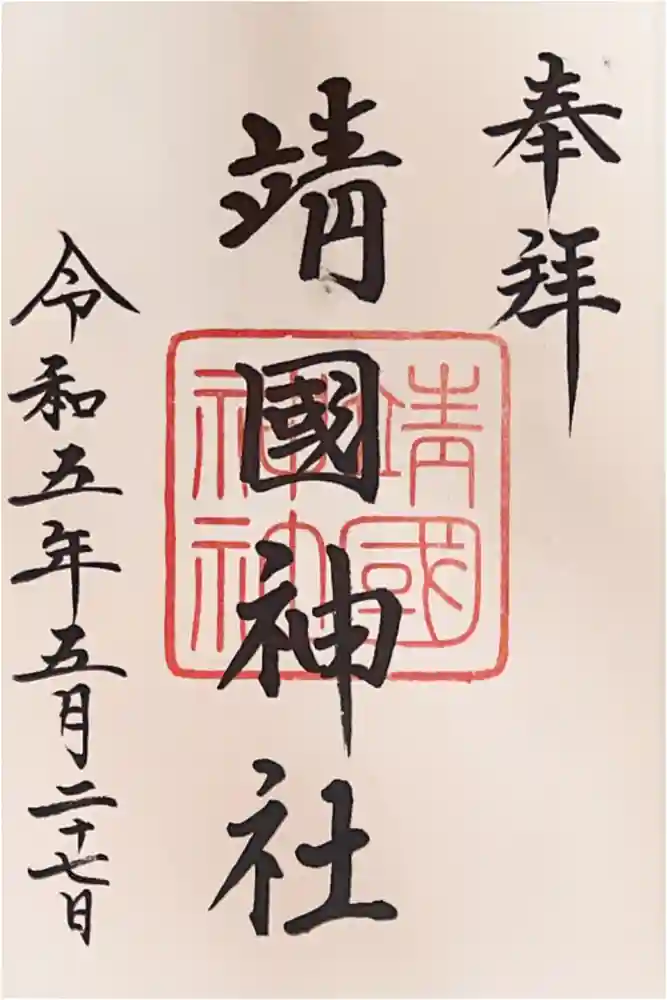 奉拝
靖國神社
靖國
神社
令和五年五月二十七日